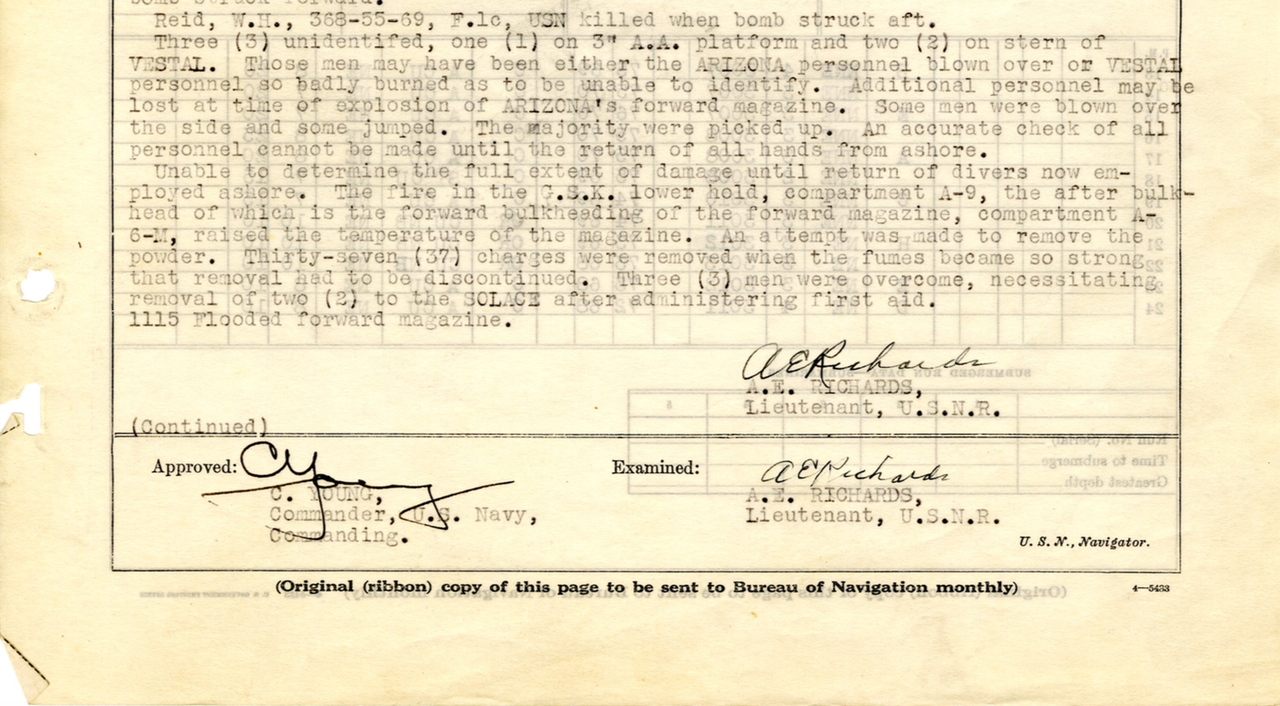 bomb struck forward.
Reid, W.H., 368-55-69, F.1c, USN killed when bomb struck aft.
Three (3) unidentifed, one (1) on 3" A.A. platform and two (2) on stern of
VESTAL. Those men may have been either the ARIZONA personnel blown over or VESTAL
personnel so badly burned as to be unable to identify. Additional personnel may be
lost at time of explosion of ARIZONA's forward magazine. Some men were blown over
the side and some jumped. The majority were picked up. An accurate check of all
personnel cannot be made until the return of all hands from ashore.
Unable to determine the full extent of damage until return of divers now em-
ployed ashore. The fire in the G.S.K. lower hold, compartment A-9, the after bulk-
head of which is the forward bulkheading of the forward magazine, compartment A-
6-M, raised the temperature of the magazine. An attempt was made to remove the
powder. Thirty-seven (37) charges were removed when the fumes became so strong
that removal had to be discontinued. Three (3) men were overcome, necessitating
removal of two (2) to the SOLACE after administering first aid.
1115 Flooded forward magazine.
A E Richards
A.E. RICHARDS,
Lieutenant, U.S.N.R.
(Continued)
Approved: C Young
C. YOUNG,
Commander, U.S. Navy,
Commanding.
Examined: A E Richards
A.E. RICHARDS,
Lieutenant, U.S.N.R.
U. S. N., Navigator.
(Original (ribbon) copy of this page to be sent to Bureau of Navigation monthly)
4—5433